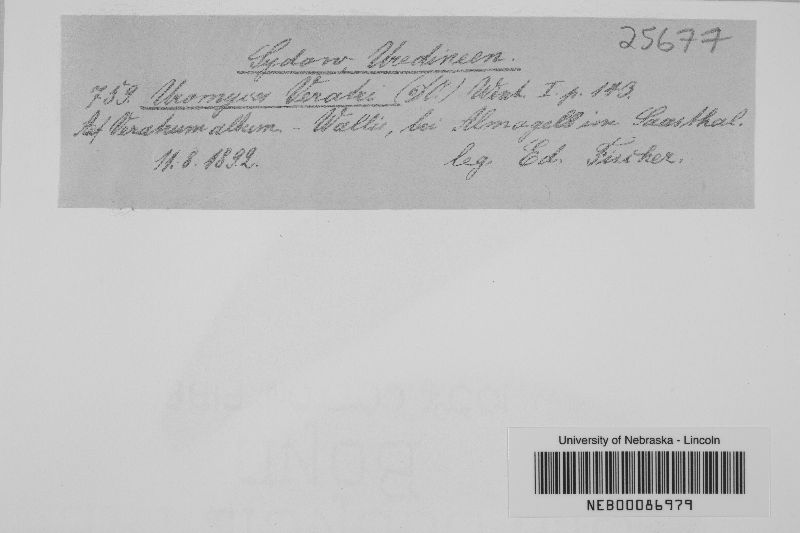 25677
Sydow, Uredineen.
759. Uromyces Veratri (DC.) Wint. I. p. 143.
Auf Veratrum album. - Wallis, bei Almagell im Saasthal.
11.8.1892. leg. Ed. Fischer.
University of Nebraska - Lincoln
NEB00086979